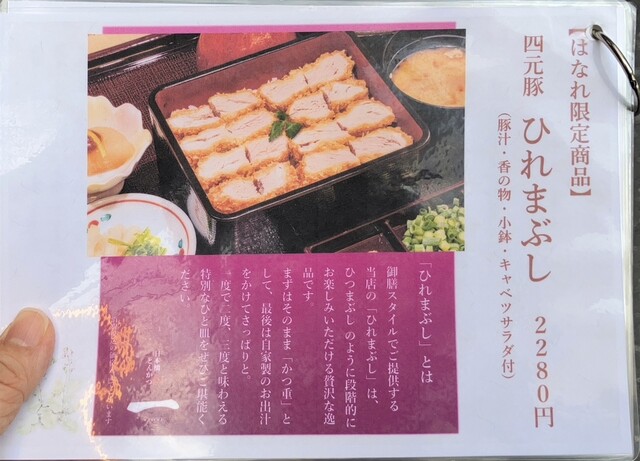 【はなれ限定商品】
四元豚 ひれまぶし 2280円
(豚汁・香の物・小鉢・キャベツサラダ付)
「ひれまぶし」とは
御膳スタイルでご提供する
当店の「ひれまぶし」は、
ひつまぶしのように段階的に
お楽しみいただける贅沢な逸
品です。
まずはそのまま「かつ重」と
して、最後は自家製のお出汁
をかけてさっぱりと、
一度で二度、三度と味わえる
特別なひと皿をぜひご堪能く
ださい。